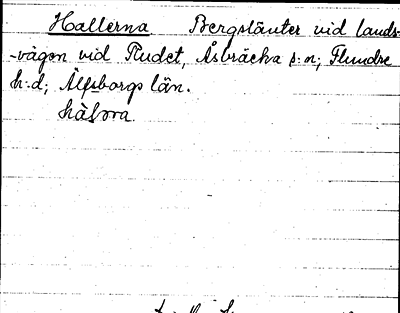 Hallerna Bergsläuter vid lands-
-vägen vid Rudet, Åsbräcka s:n; Flundre
h:d; Älfsborgs län.